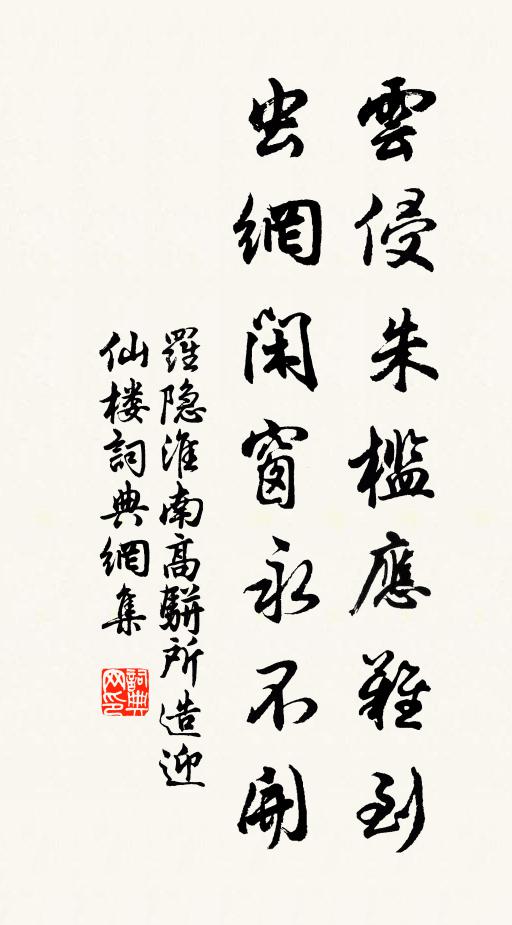 雲侵朱檻應難到
虫網閑窗永不開
羅隐淮南高駢所造迎
仙楼詞典網集
詞典网印